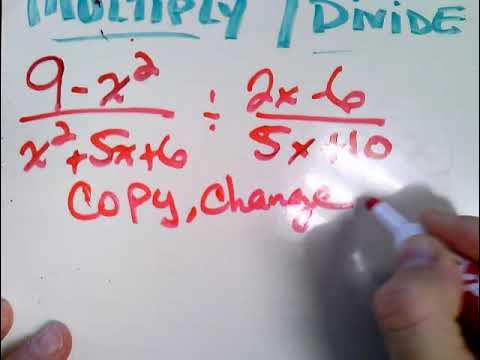 MULTIPLY / DIVIDE
9 - x² ÷ 2x - 6
x² + 5x + 6   5x + 10
copy, change